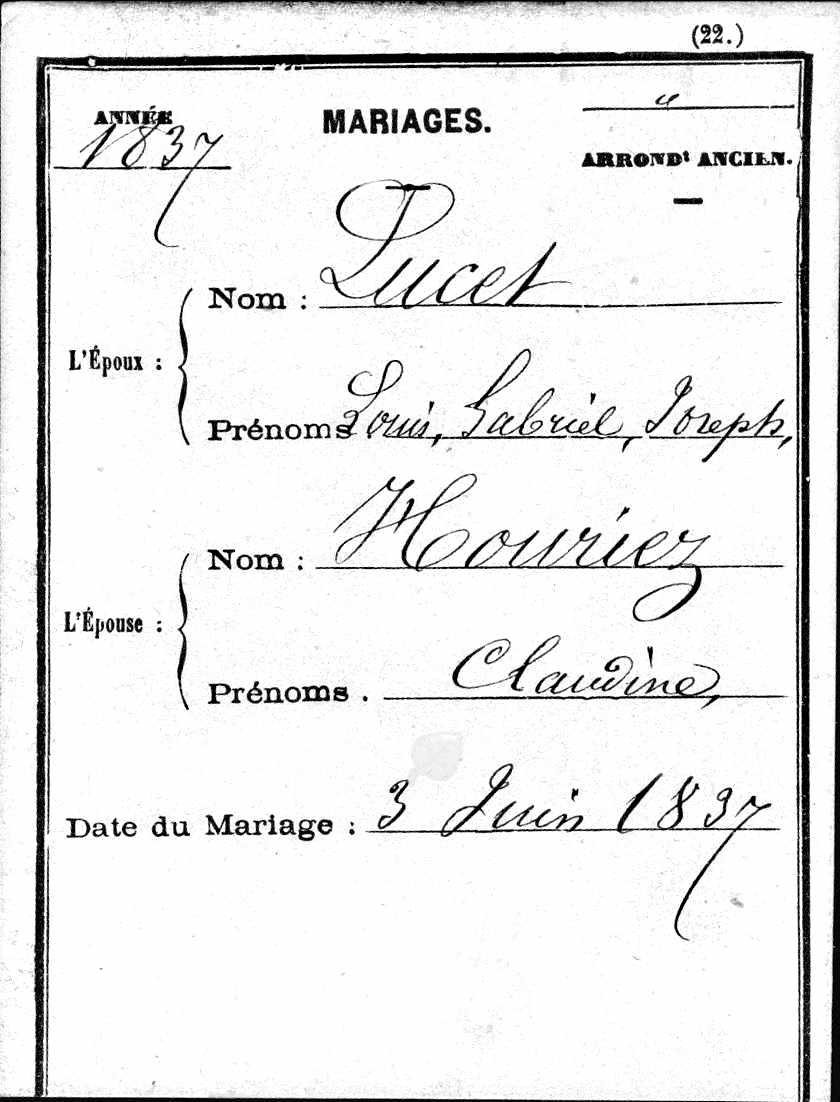 (22.)
ANNÉE
1837
MARIAGES.
"
ARRONDt ANCIEN.
L'Époux :
Nom : Lucet
Prénoms Louis, Gabriel, Joseph,
L'Épouse :
Nom : Houriez
Prénoms . Claudine,
Date du Mariage : 3 Juin 1837